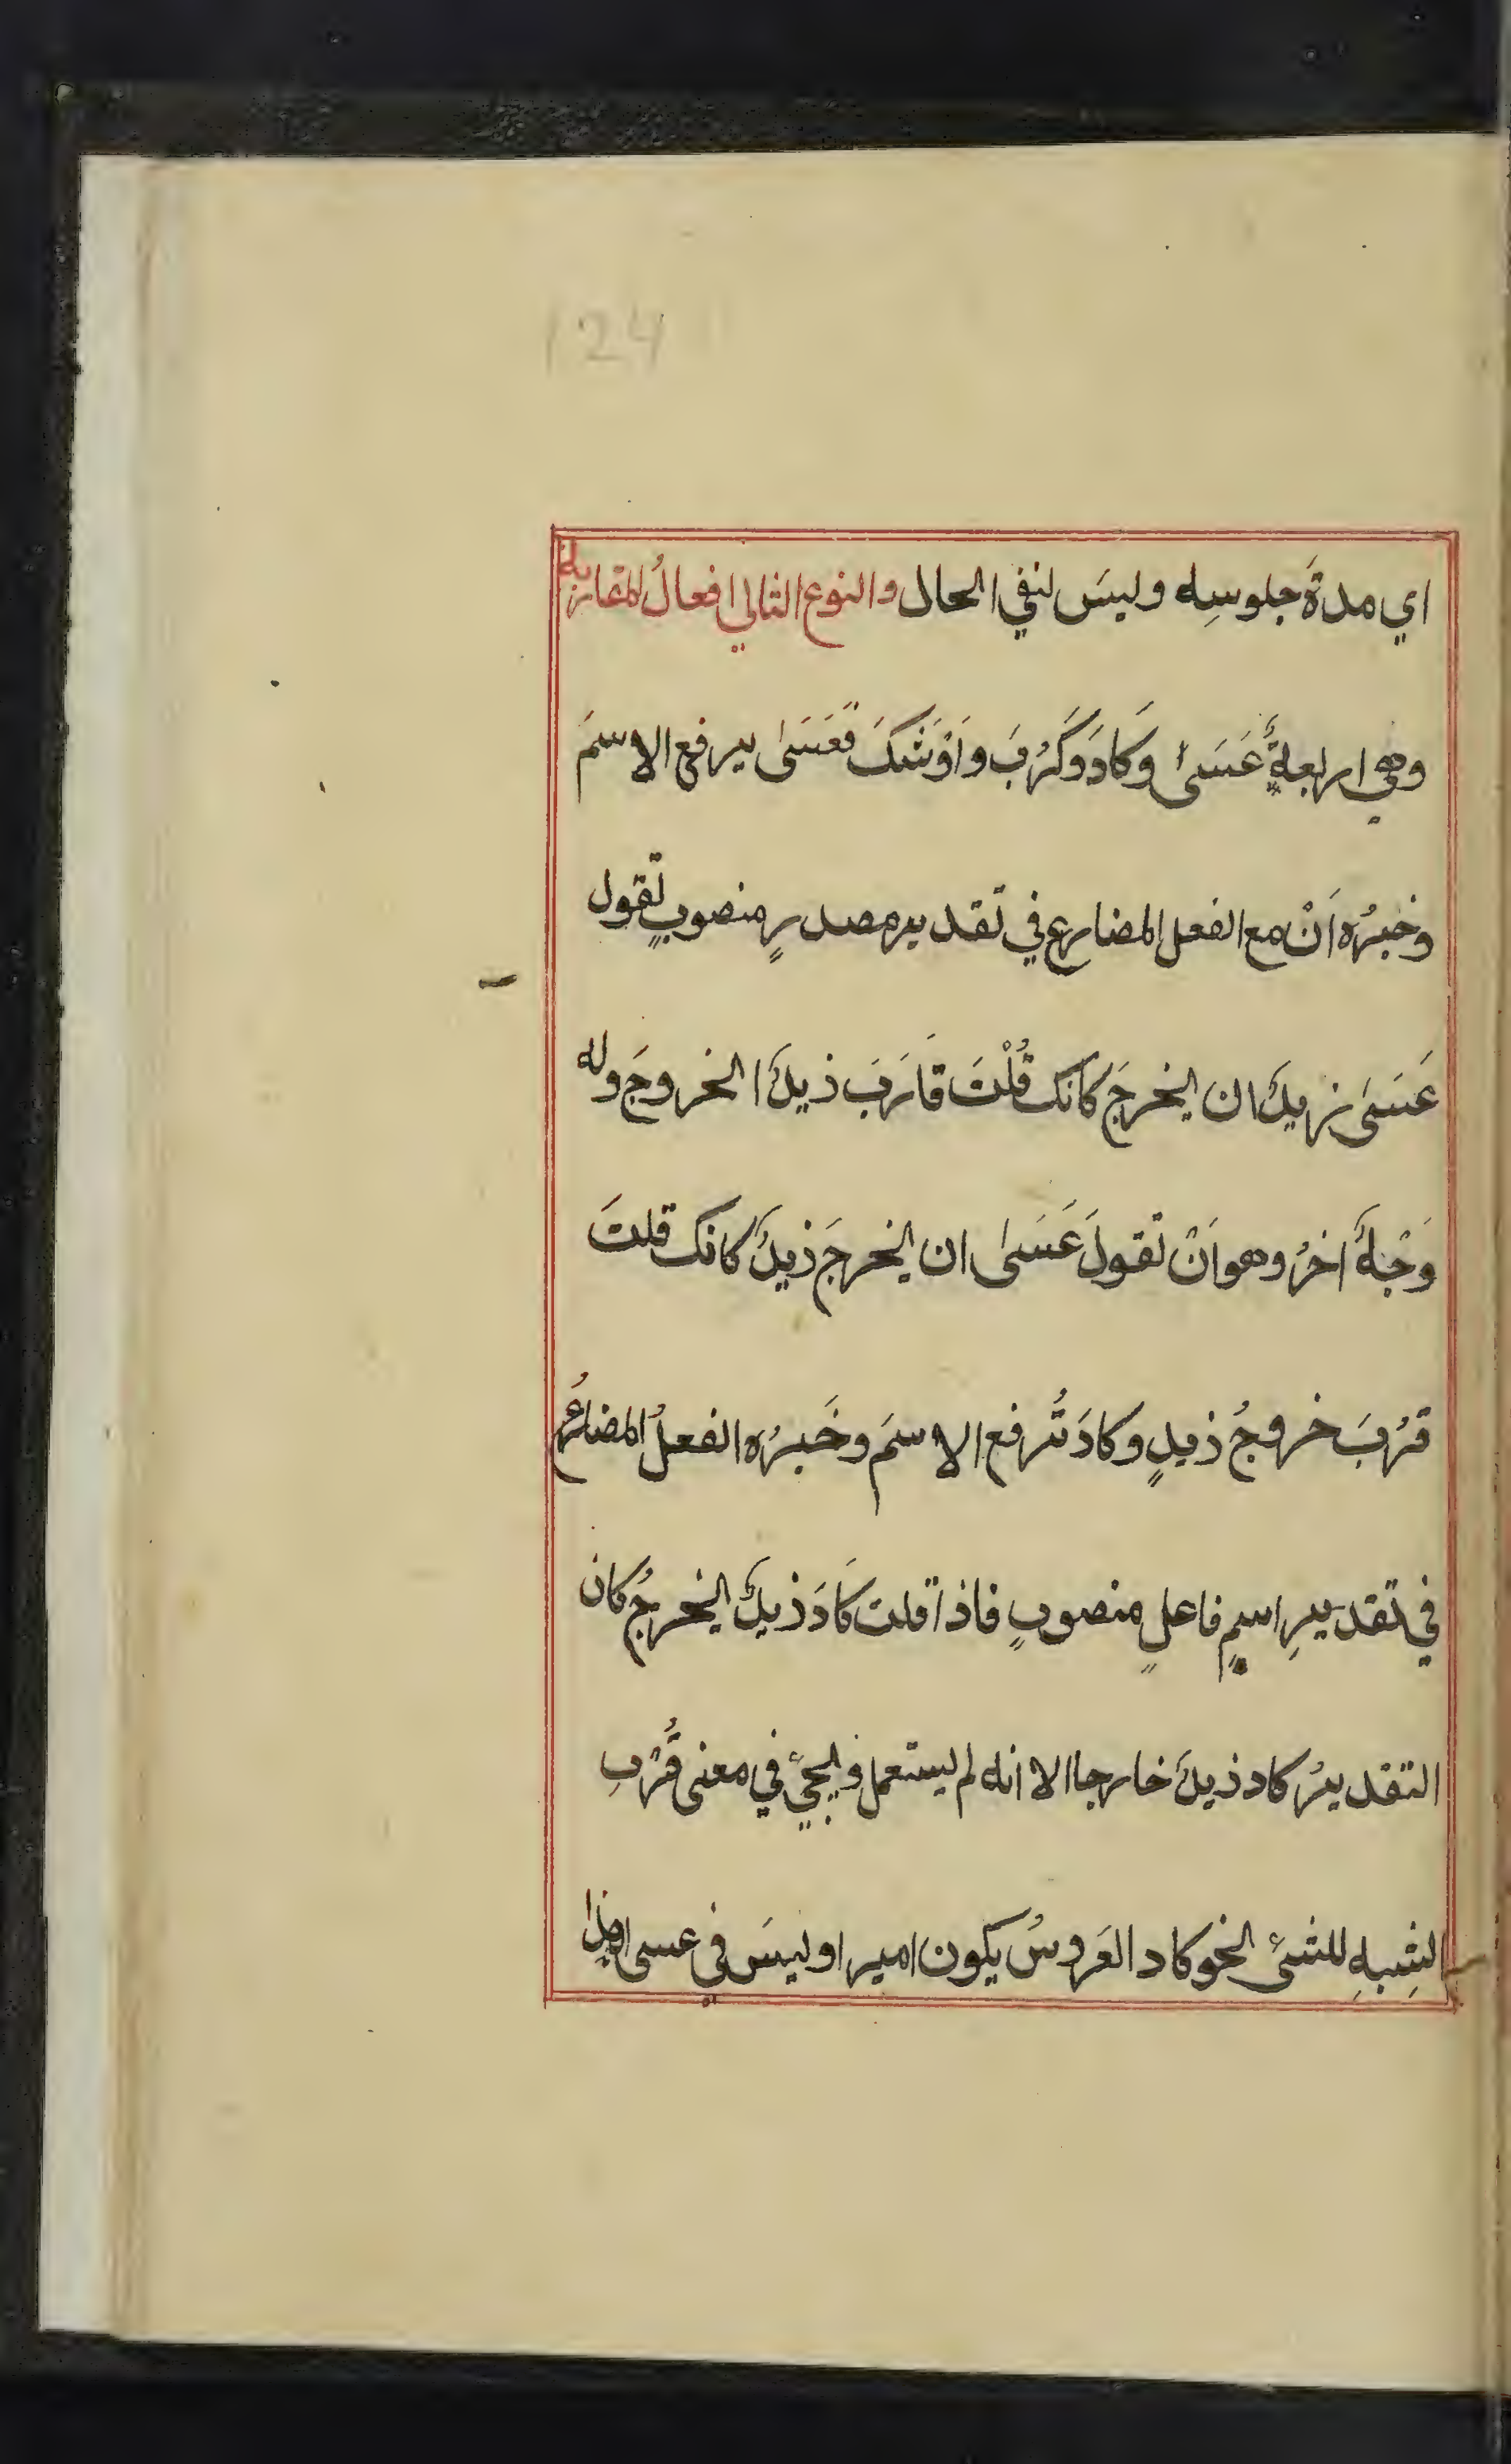 124
اي مدةَ جلوسِه وليسَ لنفي الحال والنوع الثاني افعالُ المقاربة
وهي اربعةٌ عَسَىٰ وَكَادَ وَكَرُبَ وَاَوْشَكَ فَعَسَىٰ يرفع الاسمَ
وخبرُه اَنْ مع الفعل المضارع في تقدير مصدرٍ منصوبٍ تقول
عَسَىٰ زيدٌ ان يخرجَ كانك قُلْتَ قَارَبَ زيدٌ الخروجَ وله
وَجْهٌ اخرُ وهو اَنْ تقولَ عَسَىٰ ان يخرجَ زيدٌ كانك قلتَ
قرُبَ خروجُ زيدٍ وكادَ تُرفع الاسمَ وخَبرُه الفعلُ المضارعُ
في تقديرِ اسمٍ فاعلٍ منصوبٍ فاذا قلت كَادَ زيدٌ يخرجُ كان
التقديرُ كاد زيدٌ خارجا الا انه لم يستعمل ويجيُ في معنى قُرْبِ
الشِبهِ للشيءِ نحو كاد العَروسُ يكون اميرا وليسَ في عسى هذا